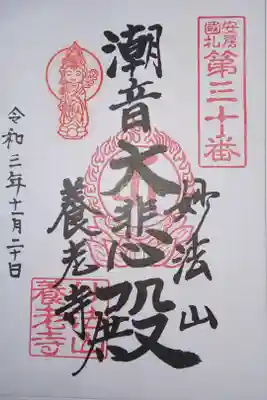 安房
國札
第三十番
妙法山
潮音大悲殿
養老寺
養老寺
令和三年十一月二十日